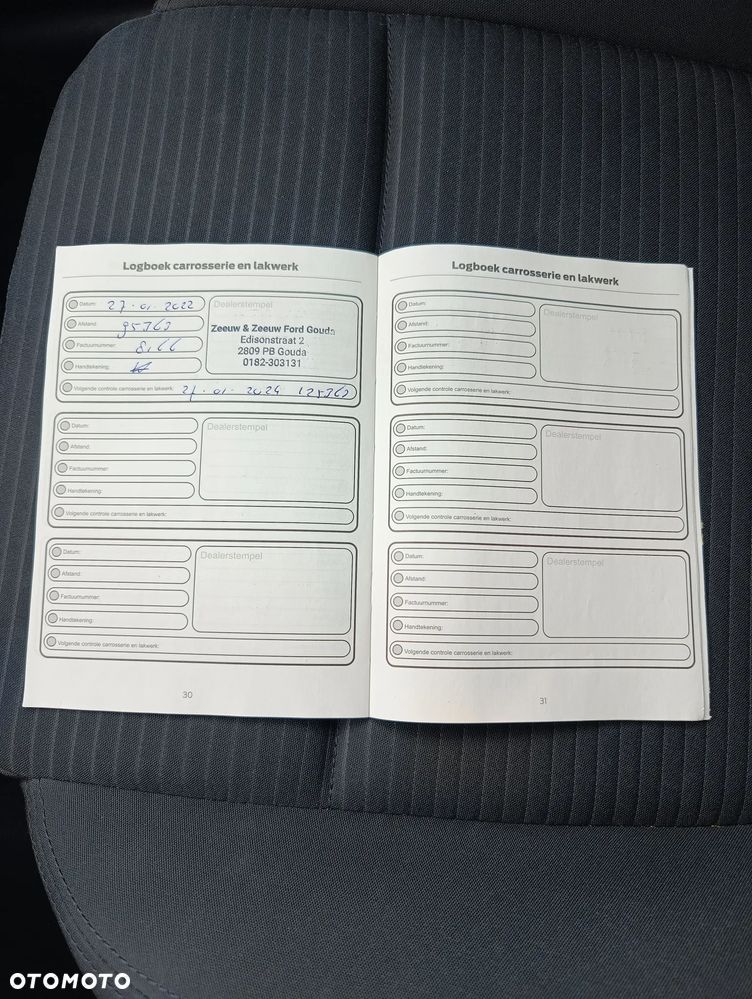 Logboek carrosserie en lakwerk
Datum: 27-01-2022
Afstand: 95363
Factuurnummer:
Handtekening:
Dealerstempel
Zeeuw & Zeeuw Ford Gouda
Edisonstraat 2
2809 PB Gouda
0182-303131
Volgende controle carrosserie en lakwerk: 27-01-2024 125363
Datum:
Afstand:
Factuurnummer:
Handtekening:
Dealerstempel
Volgende controle carrosserie en lakwerk:
Datum:
Afstand:
Factuurnummer:
Handtekening:
Dealerstempel
Volgende controle carrosserie en lakwerk:
30
Logboek carrosserie en lakwerk
Datum:
Afstand:
Factuurnummer:
Handtekening:
Dealerstempel
Volgende controle carrosserie en lakwerk:
Datum:
Afstand:
Factuurnummer:
Handtekening:
Dealerstempel
Volgende controle carrosserie en lakwerk:
Datum:
Afstand:
Factuurnummer:
Handtekening:
Dealerstempel
Volgende controle carrosserie en lakwerk:
31
OTOMOTO